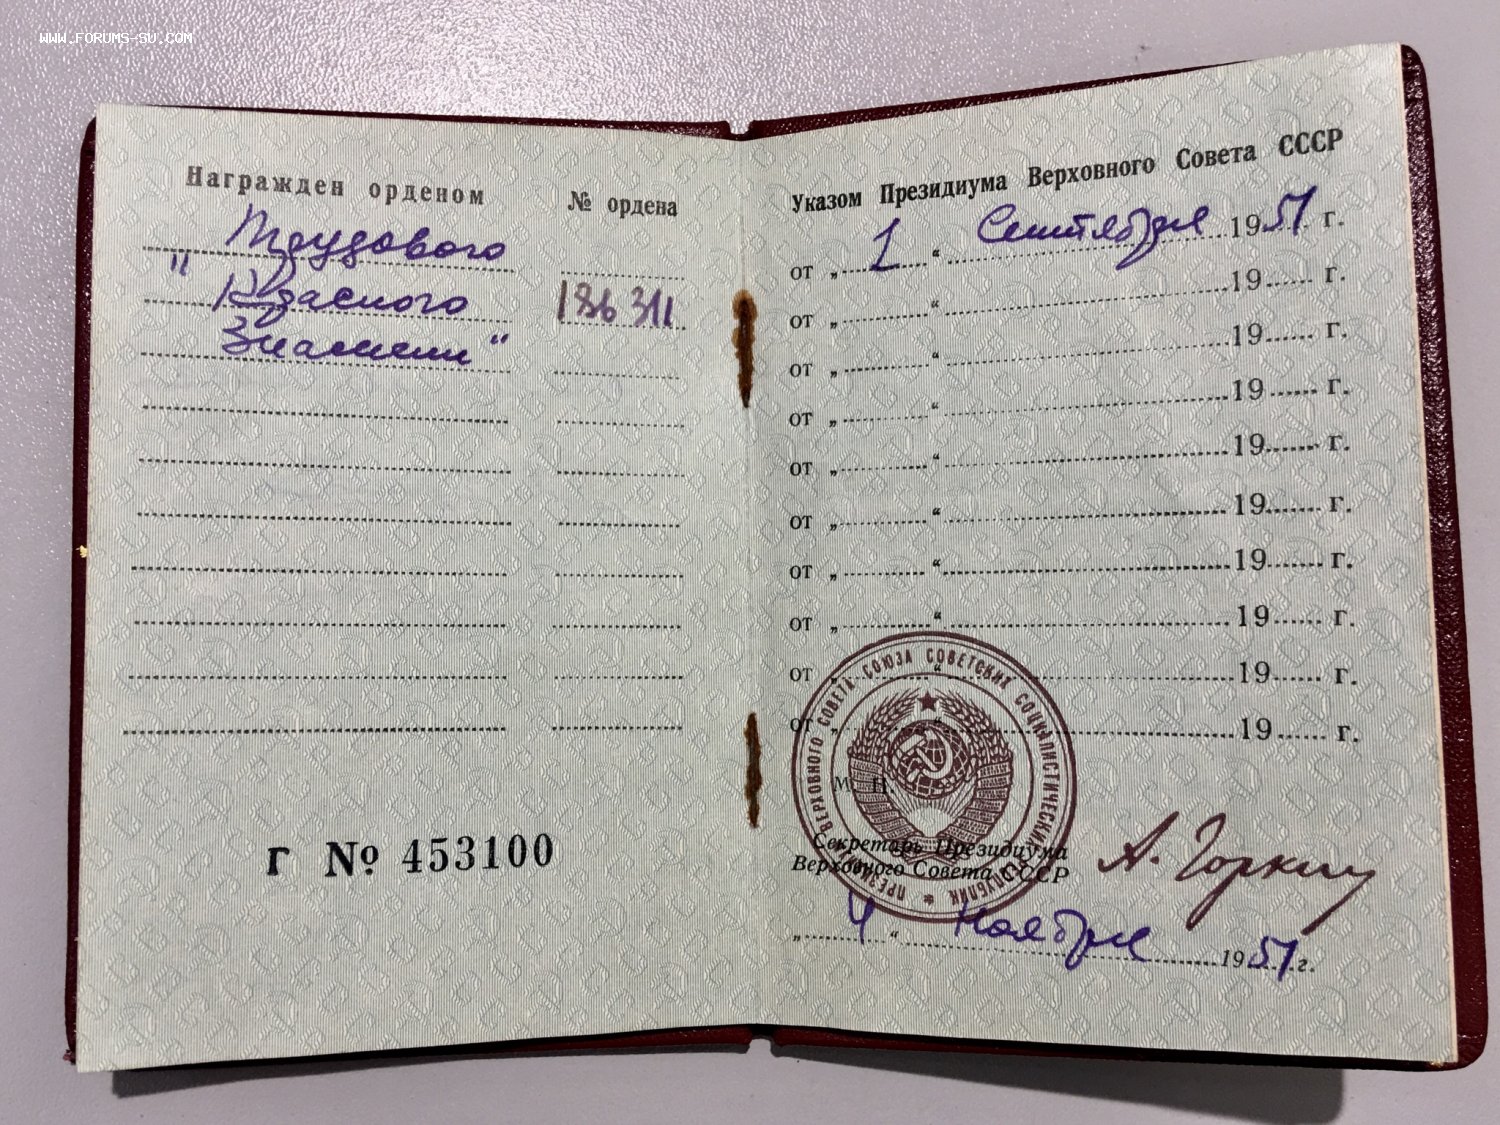 WWW.FORUMS-SU.COM
Награжден орденом
№ ордена
Трудового
"Красного
186311
Знамени"
г № 453100
Указом Президиума Верховного Совета СССР
от „ 1 “ Сентября 1951 г.
от „ “ 19 г.
от „ “ 19 г.
от „ “ 19 г.
от „ “ 19 г.
от „ “ 19 г.
от „ “ 19 г.
от „ “ 19 г.
от „ “ 19 г.
от „ “ 19 г.
ПРЕЗИДИУМ ВЕРХОВНОГО СОВЕТА СОЮЗА СОВЕТСКИХ СОЦИАЛИСТИЧЕСКИХ РЕСПУБЛИК
М. П.
Секретарь Президиума
Верховного Совета СССР
А. Горкин
„ 4 “ Ноября 1951 г.